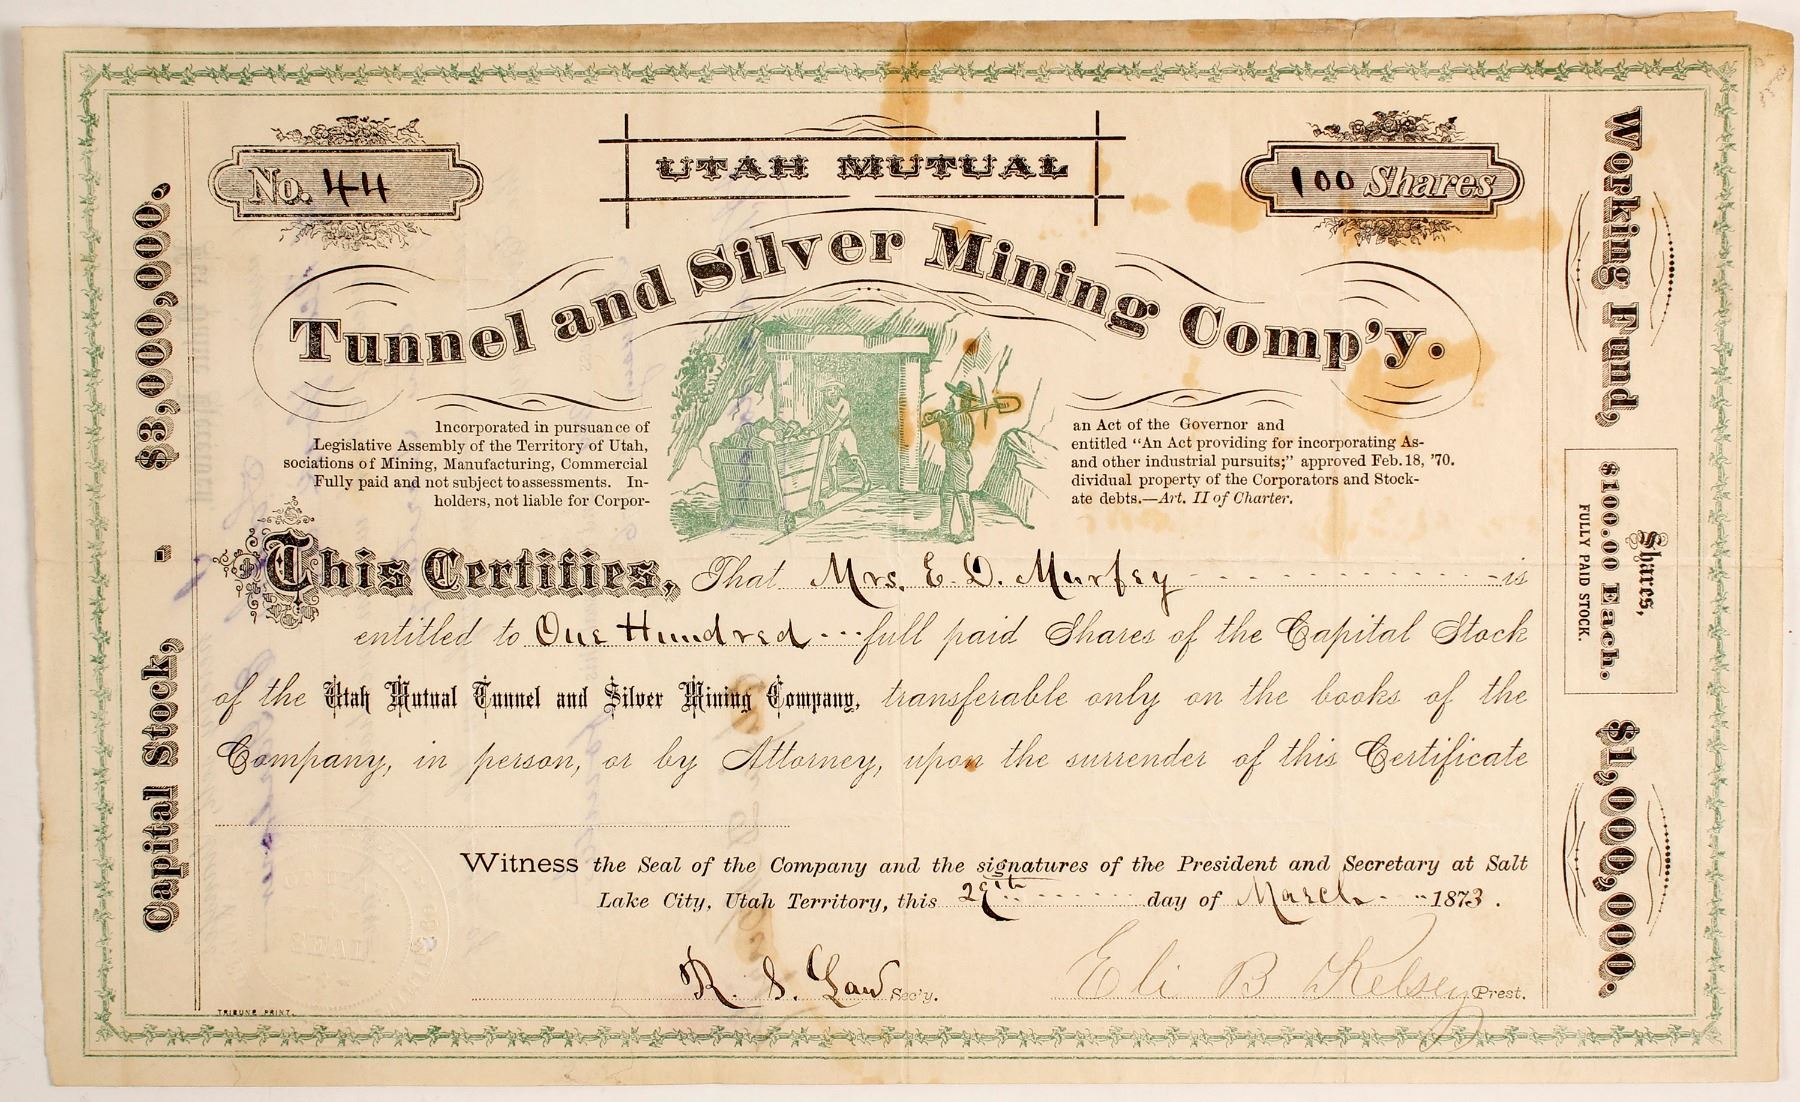 No. 44
UTAH MUTUAL
100 Shares
Tunnel and Silver Mining Comp'y.
Incorporated in pursuance of
Legislative Assembly of the Territory of Utah,
sociations of Mining, Manufacturing, Commercial
Fully paid and not subject to assessments. In-
holders, not liable for Corpor-
an Act of the Governor and
entitled "An Act providing for incorporating As-
and other industrial pursuits;" approved Feb. 18, '70.
dividual property of the Corporators and Stock-
ate debts.—Art. II of Charter.
This Certifies, That Mrs. E. D. Murfey is
entitled to One Hundred full paid Shares of the Capital Stock
of the Utah Mutual Tunnel and Silver Mining Company, transferable only on the books of the
Company, in person, or by Attorney, upon the surrender of this Certificate
Witness the Seal of the Company and the signatures of the President and Secretary at Salt
Lake City, Utah Territory, this 29th day of March 1873.
R. S. Law Sec'y.
Eli B Kelsey Prest.
TRIBUNE PRINT.
SEAL.
Capital Stock, - $3,000,000.
Working Fund, $1,000,000.
Shares,
$100.00 Each.
FULLY PAID STOCK.